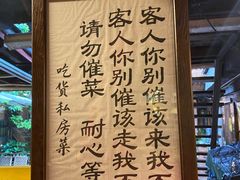 客人你别催该来我
客人你别催该走我
请勿催菜 耐心等
吃货私房菜